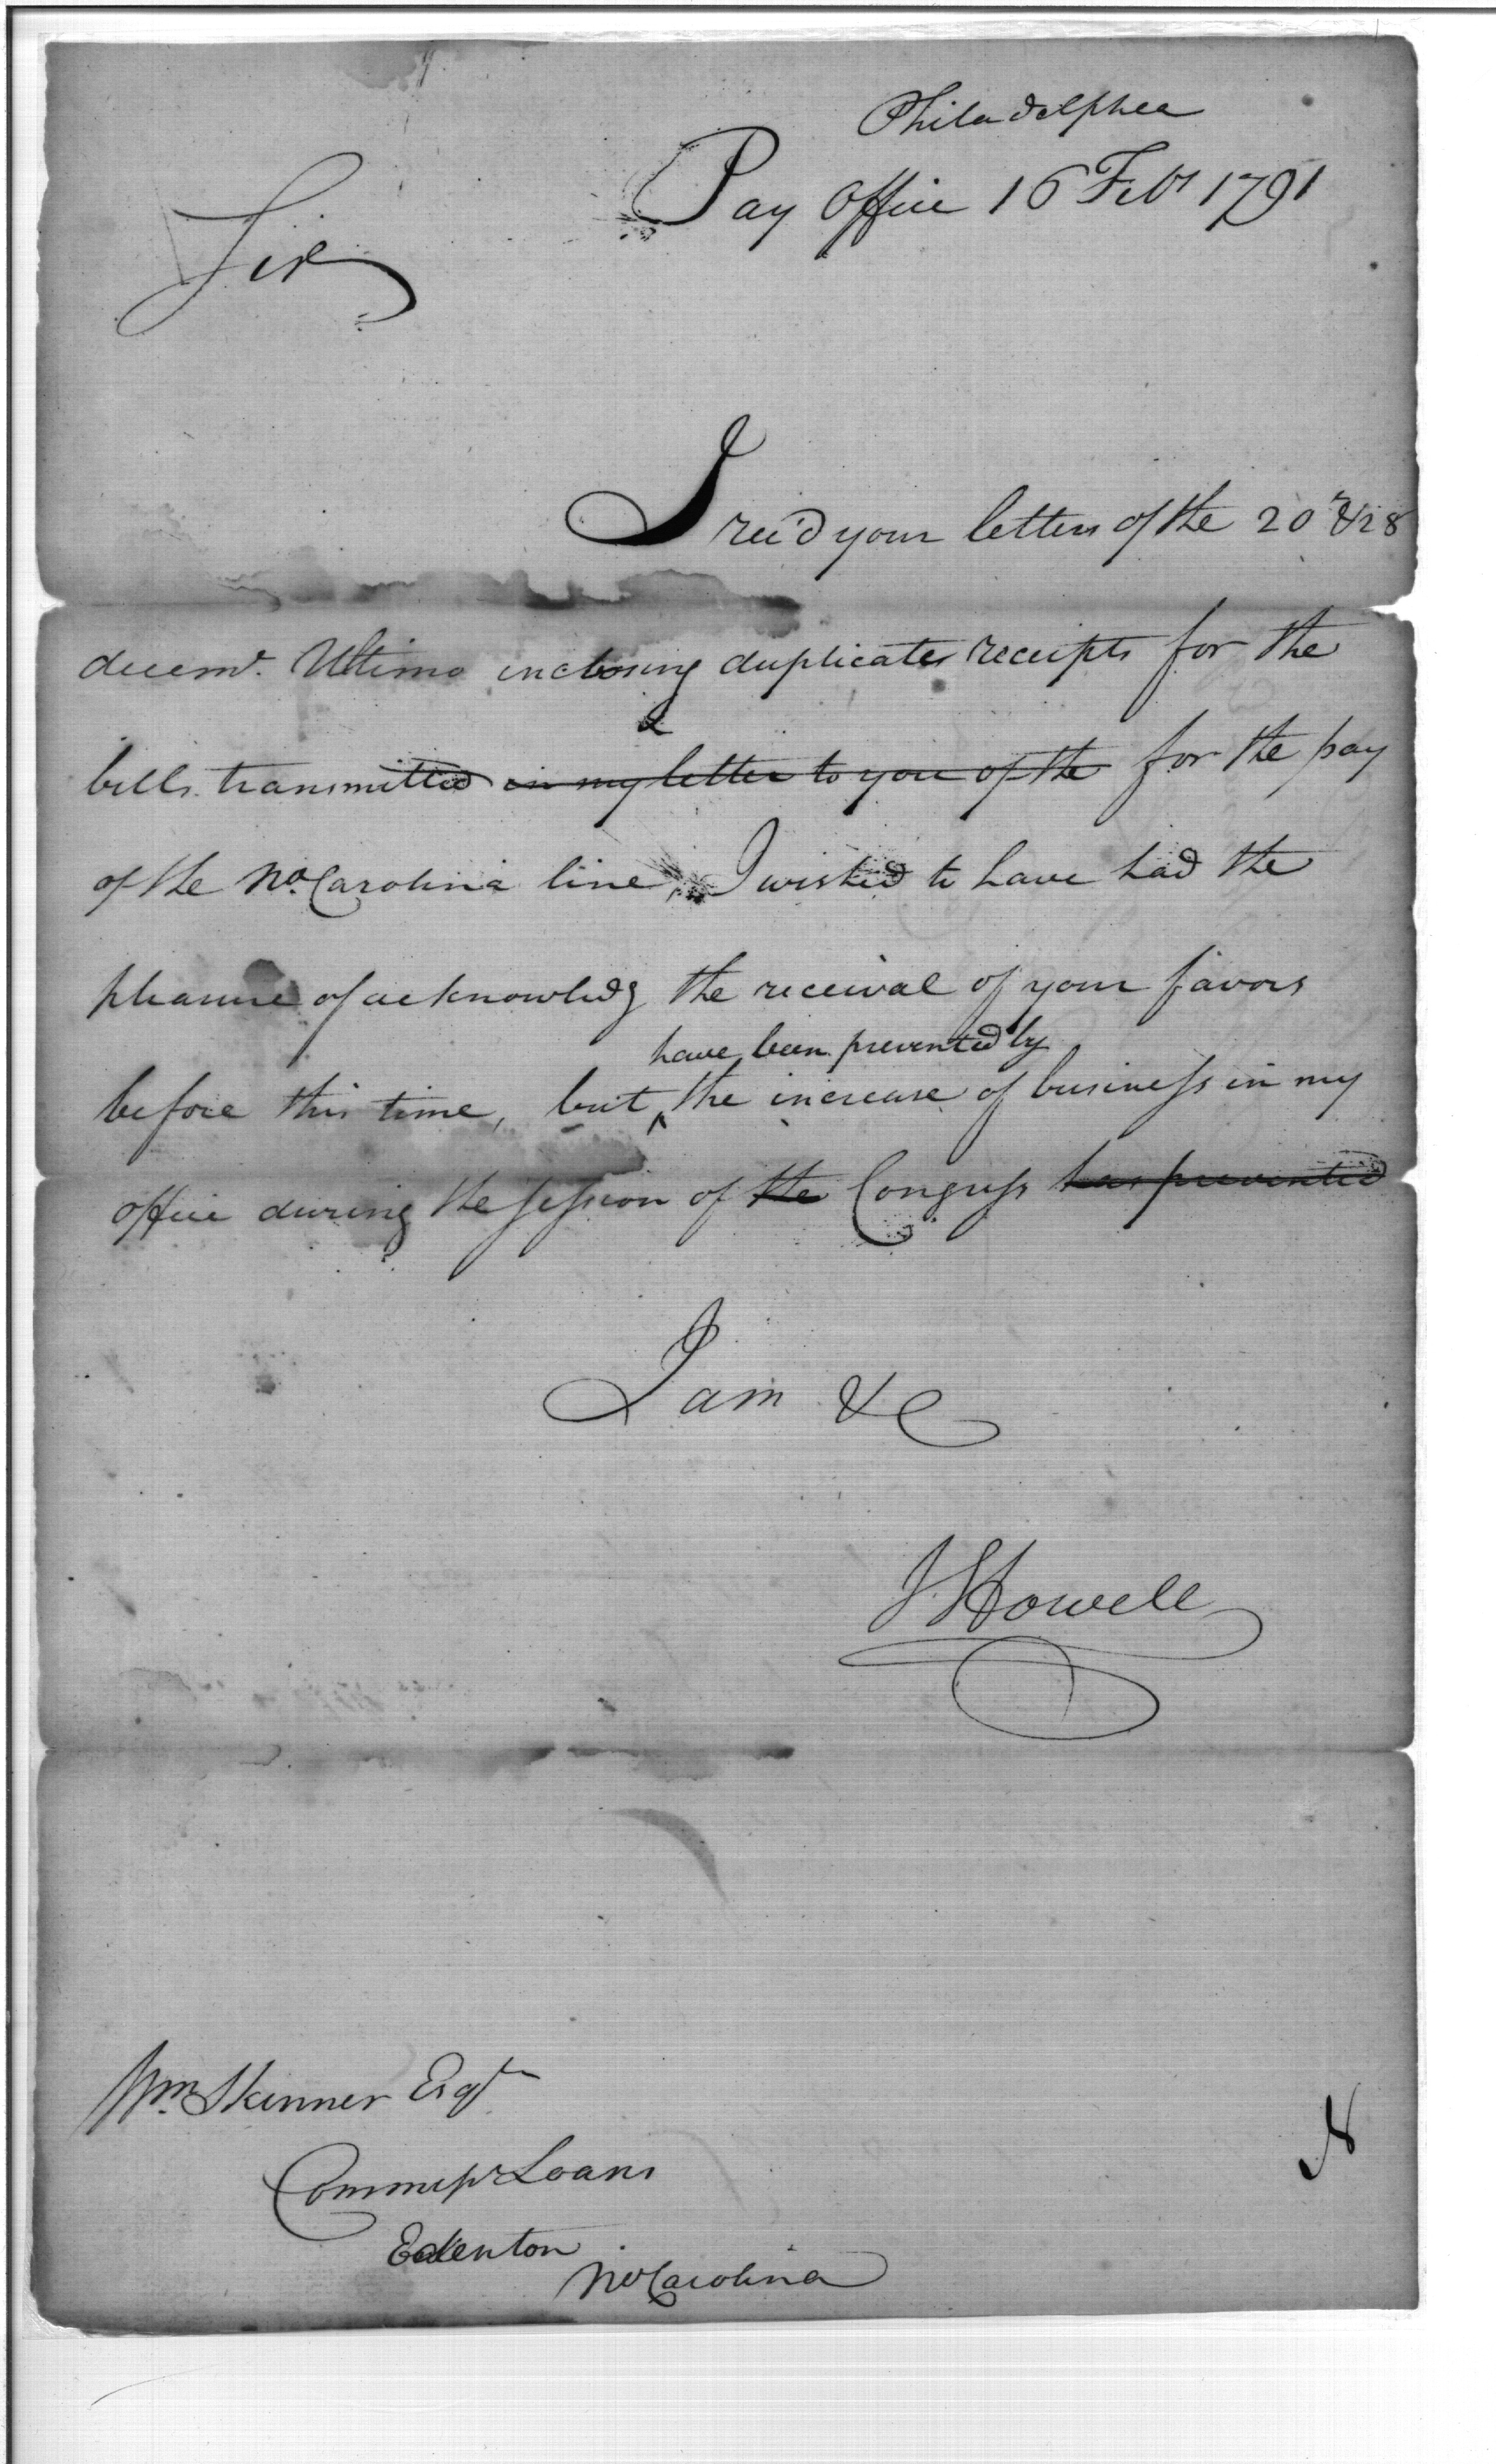 Philadelphia
Pay Office 16 Feby 1791
Sir
I rec'd your letters of the 20 & 28
decemr. Ultimo inclosing duplicates receipts for the
bills transmitted in my letter to you of the for the pay
of the No. Carolina line, I wished to have had the
pleasure of acknowledg the receival of your favors
have been prevented by
before this time, but ^ the increase of business in my
office during the session of the Congress has prevented
I am &c
J Howell
Wm. Skinner Esqr
Commissr Loans
Edenton
No Carolina